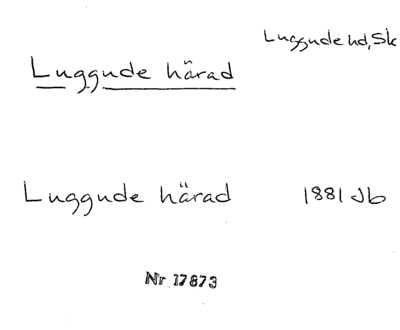 Luggude hd, Sk
Luggude härad
Luggude härad 1881 Jb
Nr 17873